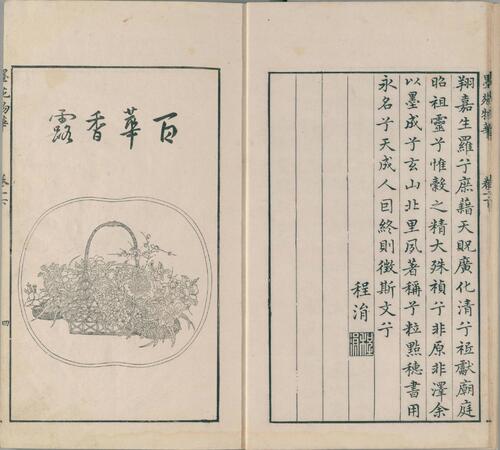 翔嘉生羅兮庶藉天貺廣化清兮祗獻廟庭
昭祖靈兮惟穀之精大殊禎兮非原非澤余
以墨成兮玄山北里夙著稱兮粒點穗書用
永名兮天成人因終則徵斯文兮
程涓
百華香露
四